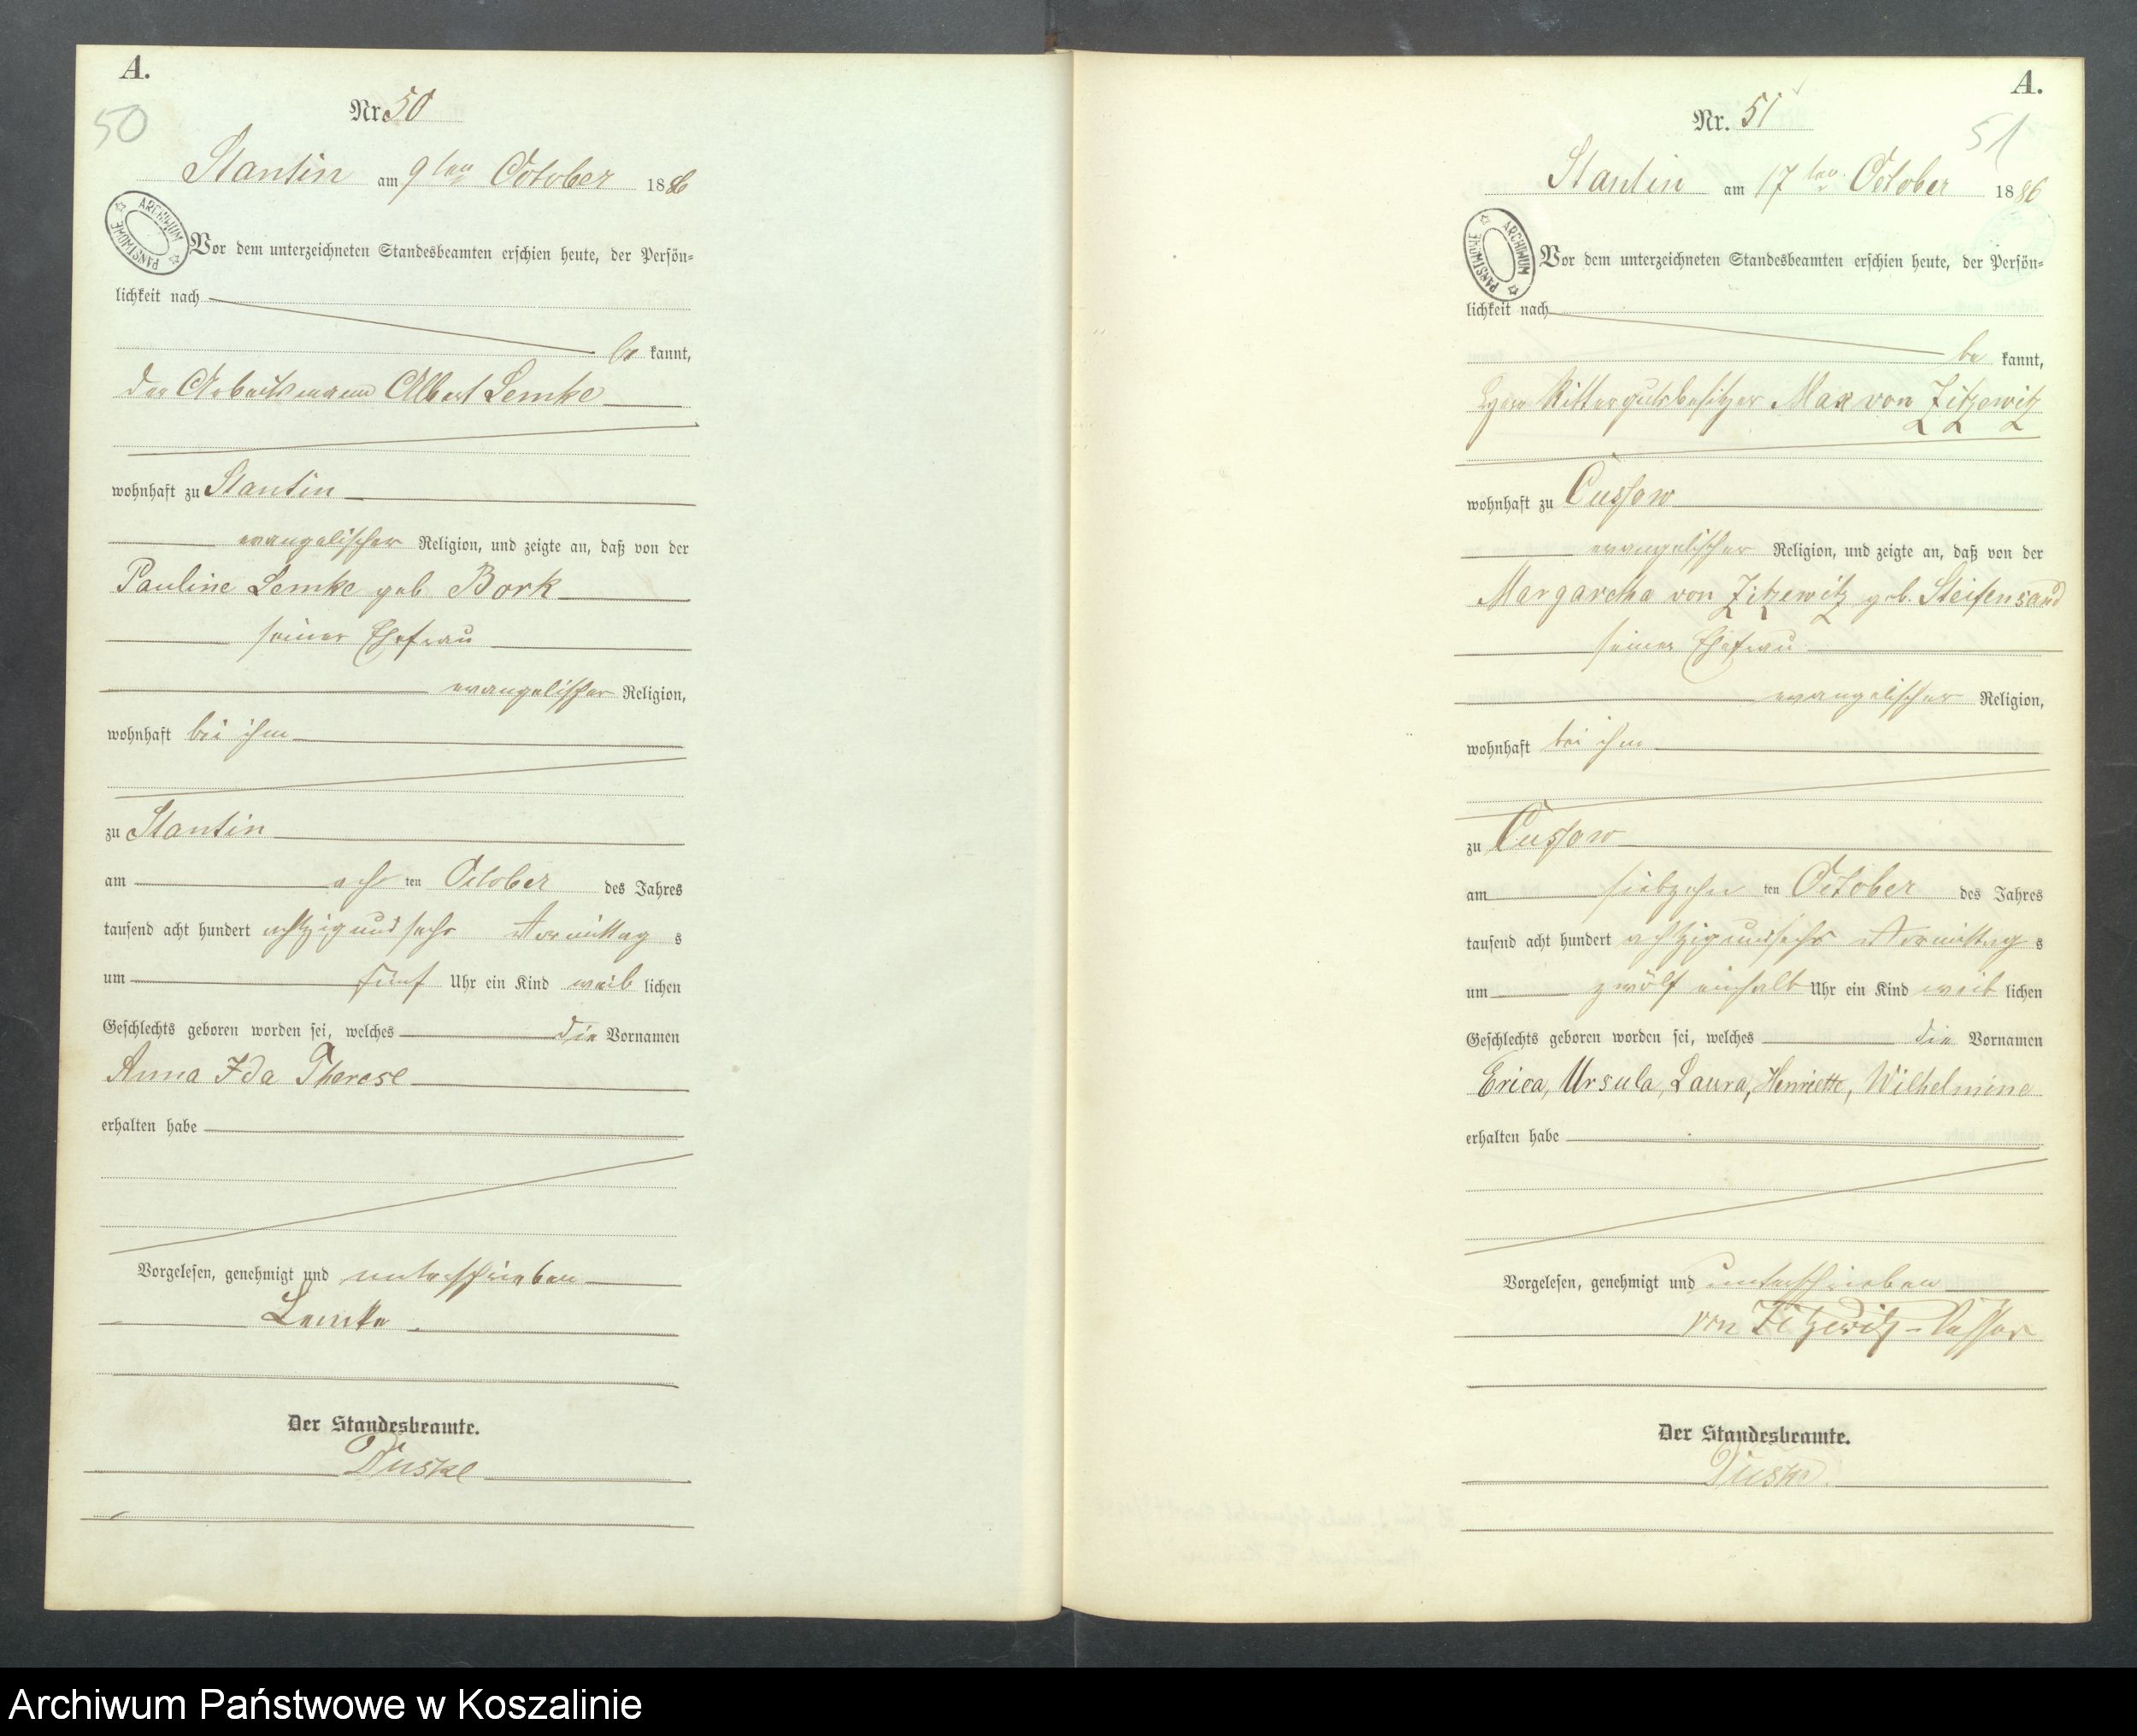 A.
50
Nr. 50
Stantin am 9ten October 1886
ARCHIWUM PAŃSTWOWE
Vor dem unterzeichneten Standesbeamten erschien heute, der Persön-
lichkeit nach
be kannt,
der Arbeitsmann Albert Lemke
wohnhaft zu Stantin
evangelischer Religion, und zeigte an, daß von der
Pauline Lemke geb. Bork
seiner Ehefrau
evangelischer Religion,
wohnhaft bei ihm
zu Stantin
am acht ten October des Jahres
tausend acht hundert achtzig und sechs Vormittag s
um fünf Uhr ein Kind weib lichen
Geschlechts geboren worden sei, welches die Vornamen
Anna Ida Therese
erhalten habe
Vorgelesen, genehmigt und unterschrieben
Lemke
Der Standesbeamte.
Duske
A.
51
Nr. 51
Stantin am 17ten October 1886
ARCHIWUM PAŃSTWOWE
Vor dem unterzeichneten Standesbeamten erschien heute, der Persön-
lichkeit nach
be kannt,
Rittergutsbesitzer Max von Zitzewitz
wohnhaft zu Cussow
evangelischer Religion, und zeigte an, daß von der
Margaretha von Zitzewitz geb. Steifensand
seiner Ehefrau
evangelischer Religion,
wohnhaft bei ihm
zu Cussow
am siebzehn ten October des Jahres
tausend acht hundert achtzig und sechs Vormittag s
um zwölf einhalb Uhr ein Kind weib lichen
Geschlechts geboren worden sei, welches die Vornamen
Erica, Ursula, Laura, Henriette, Wilhelmine
erhalten habe
Vorgelesen, genehmigt und unterschrieben
von Zitzewitz-Cussow
Der Standesbeamte.
Duske.
Archiwum Państwowe w Koszalinie